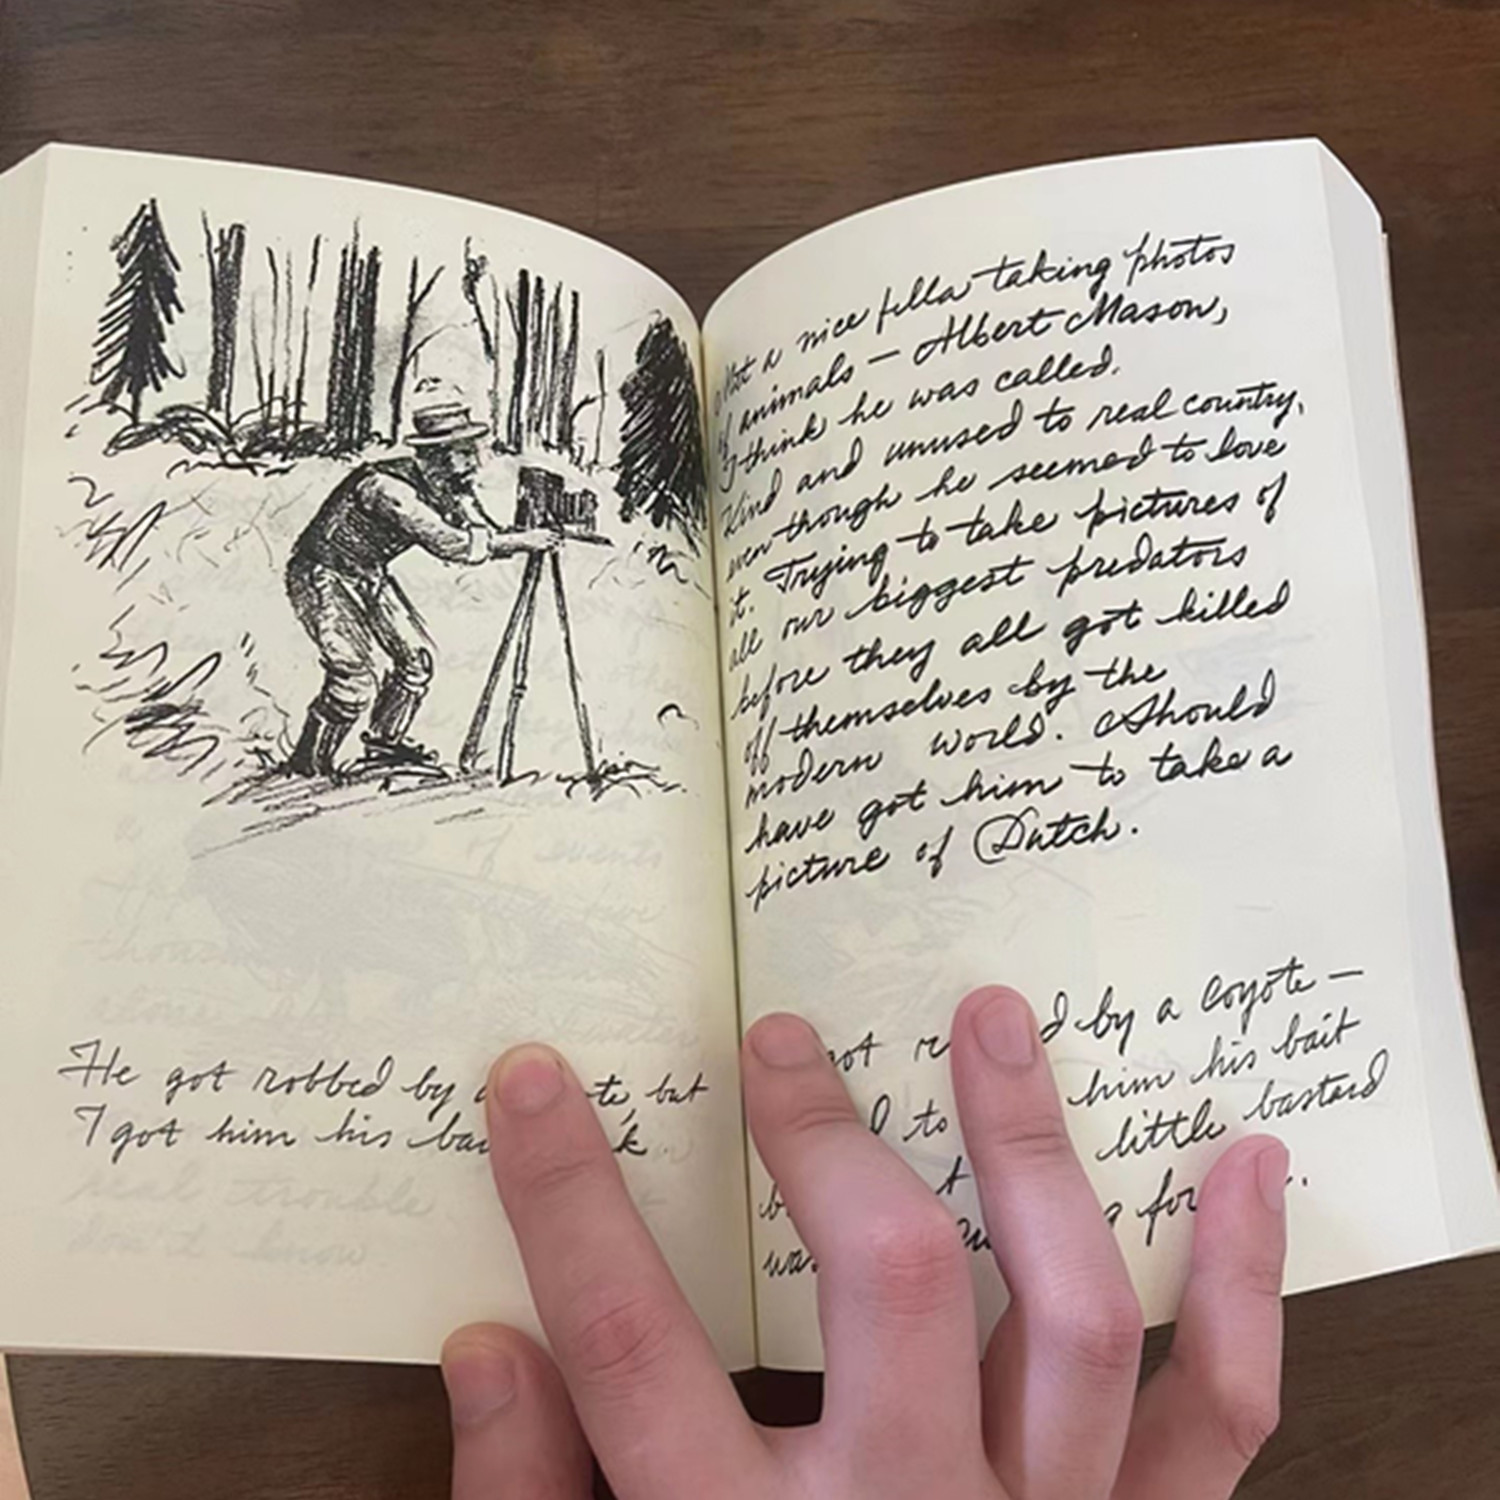 He got robbed by a, but
I got him his
Met a nice fella taking photos
of animals — Albert Mason,
I think he was called.
Kind and unused to real country,
even though he seemed to love
it. Trying to take pictures of
all our biggest predators
before they all got killed
off themselves by the
modern world. Should
have got him to take a
picture of Dutch.
got by a coyote —
to him his bait
little bastard
was for